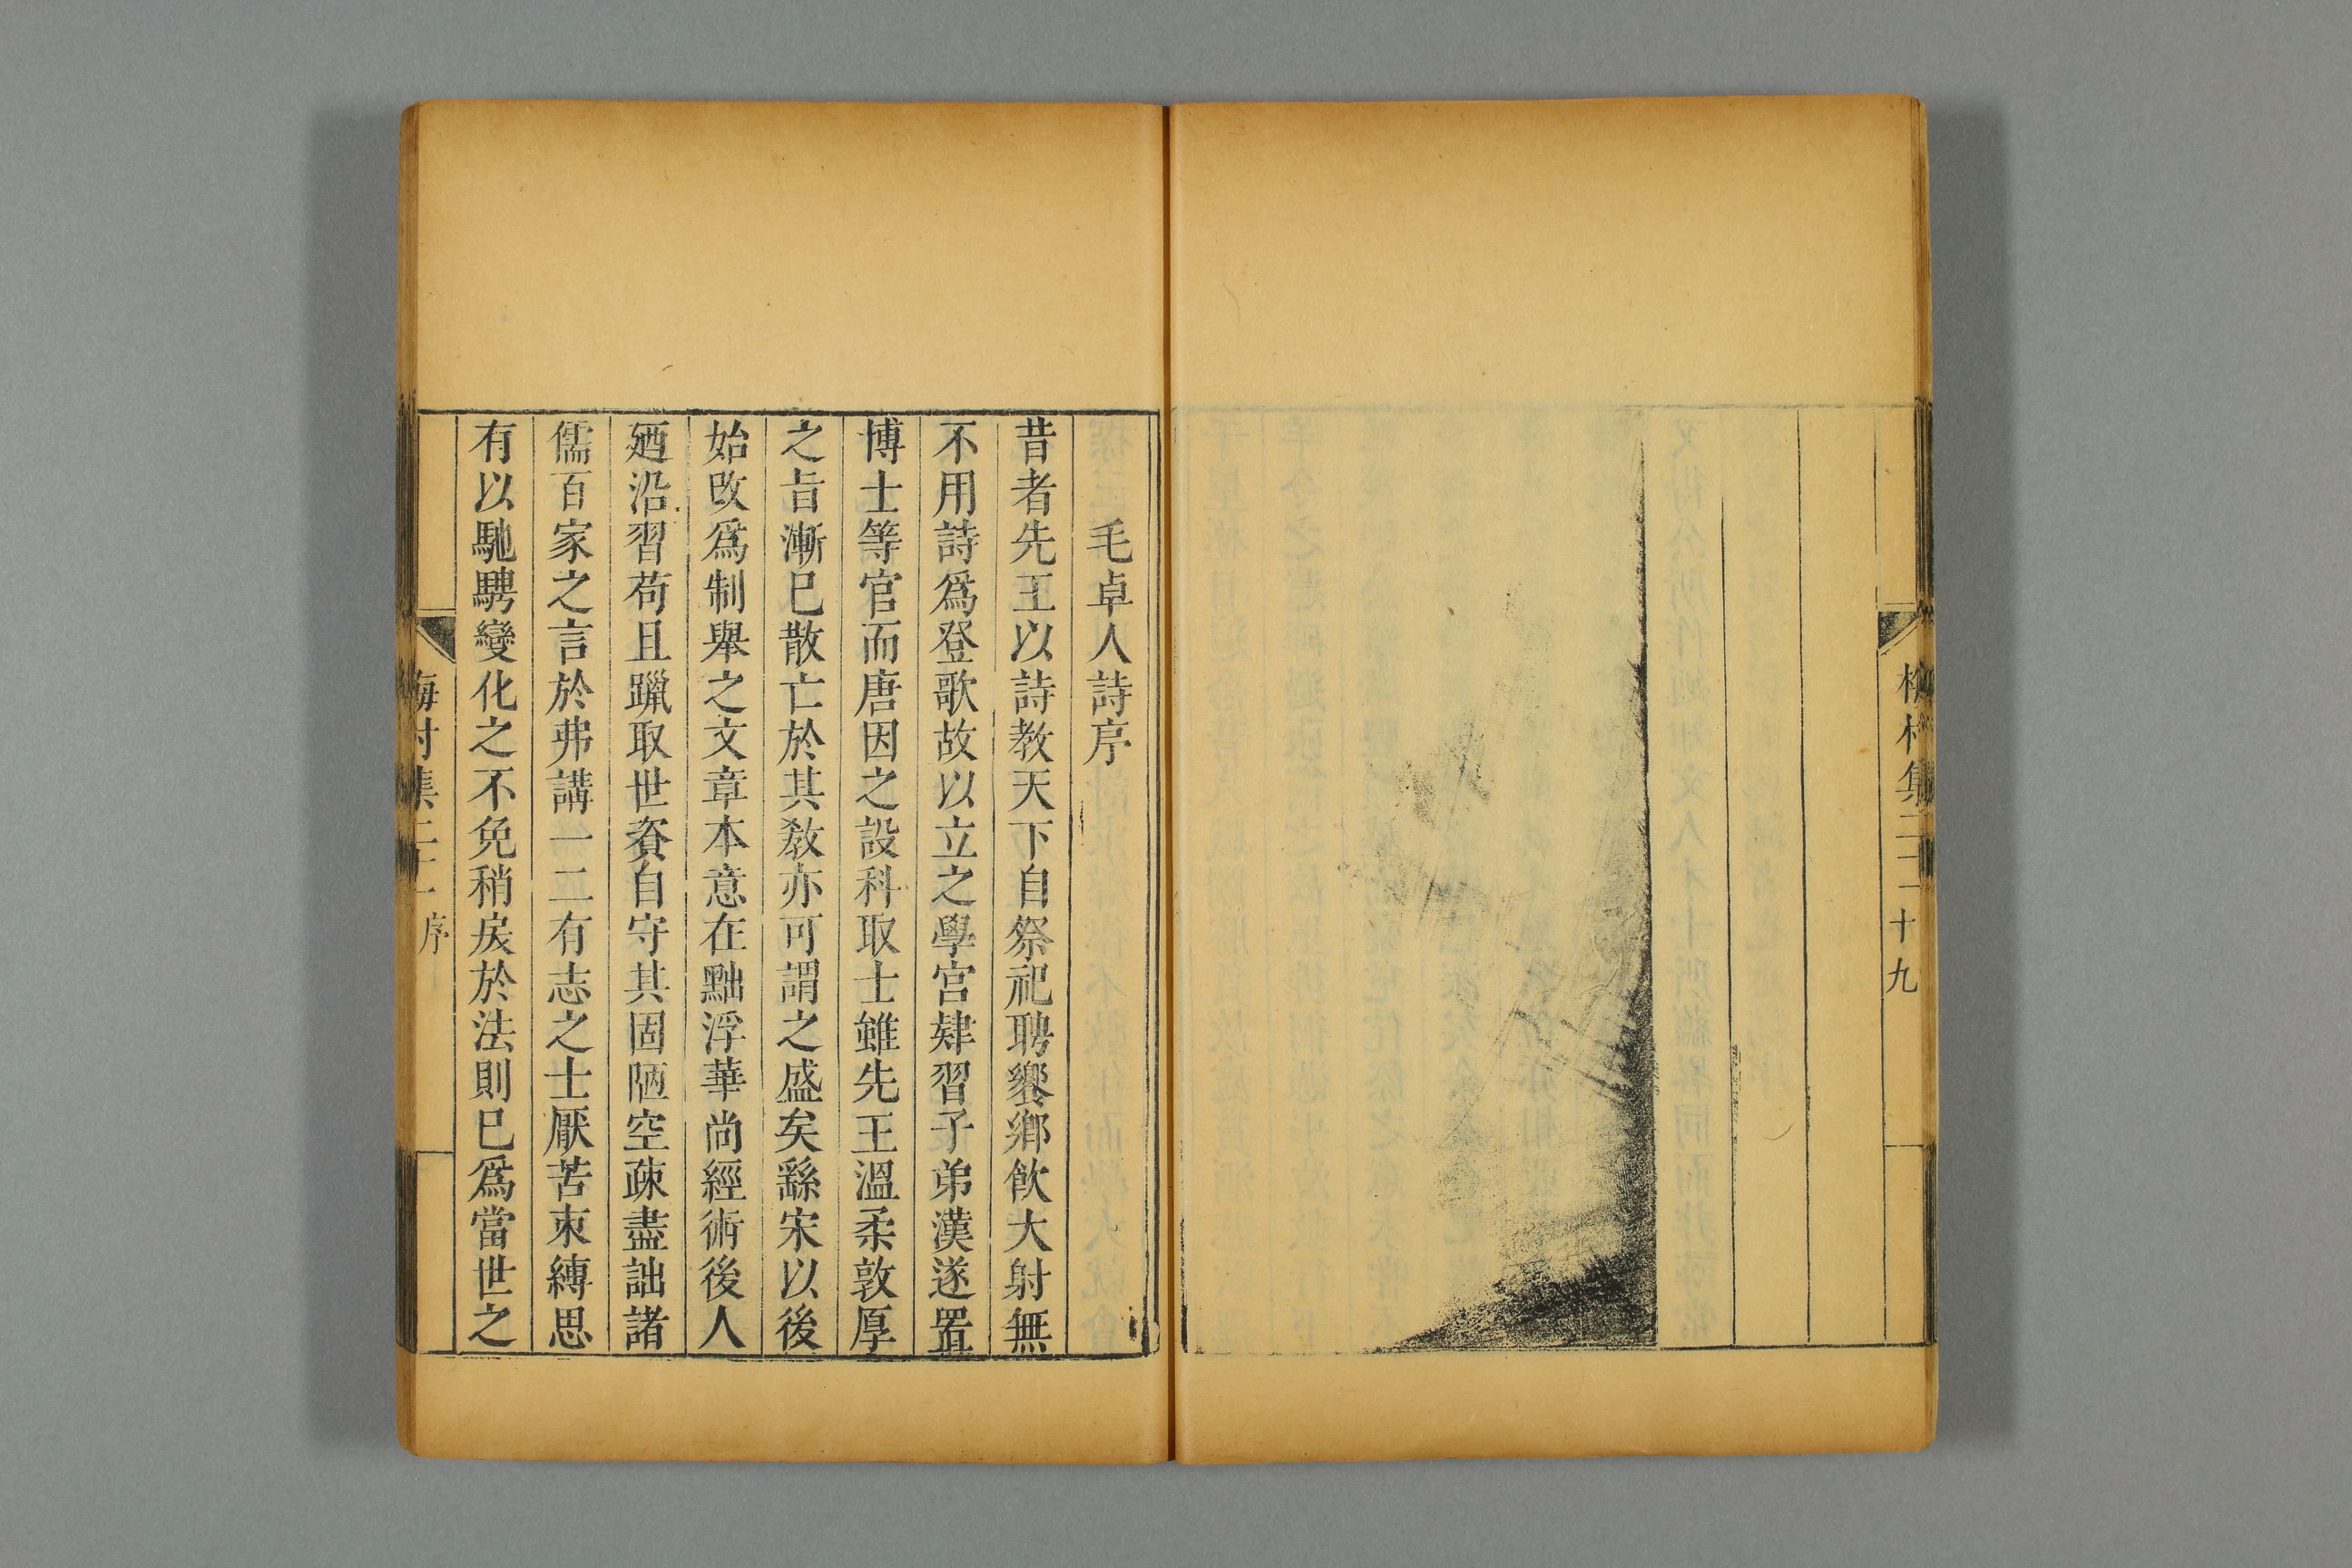 梅村集二十一
十九
毛卓人詩序
昔者先王以詩教天下自祭祀聘饗鄉飲大射無
不用詩爲登歌故以立之學宮肄習子弟漢遂置
博士等官而唐因之設科取士雖先王溫柔敦厚
之旨漸巳散亡於其敎亦可謂之盛矣繇宋以後
始改爲制舉之文章本意在黜浮華尚經術後人
廼沿習苟且躐取世資自守其固陋空疎盡詘諸
儒百家之言於弗講一二有志之士厭苦束縛思
有以馳騁變化之不免稍戾於法則巳爲當世之
梅村集二十一
序